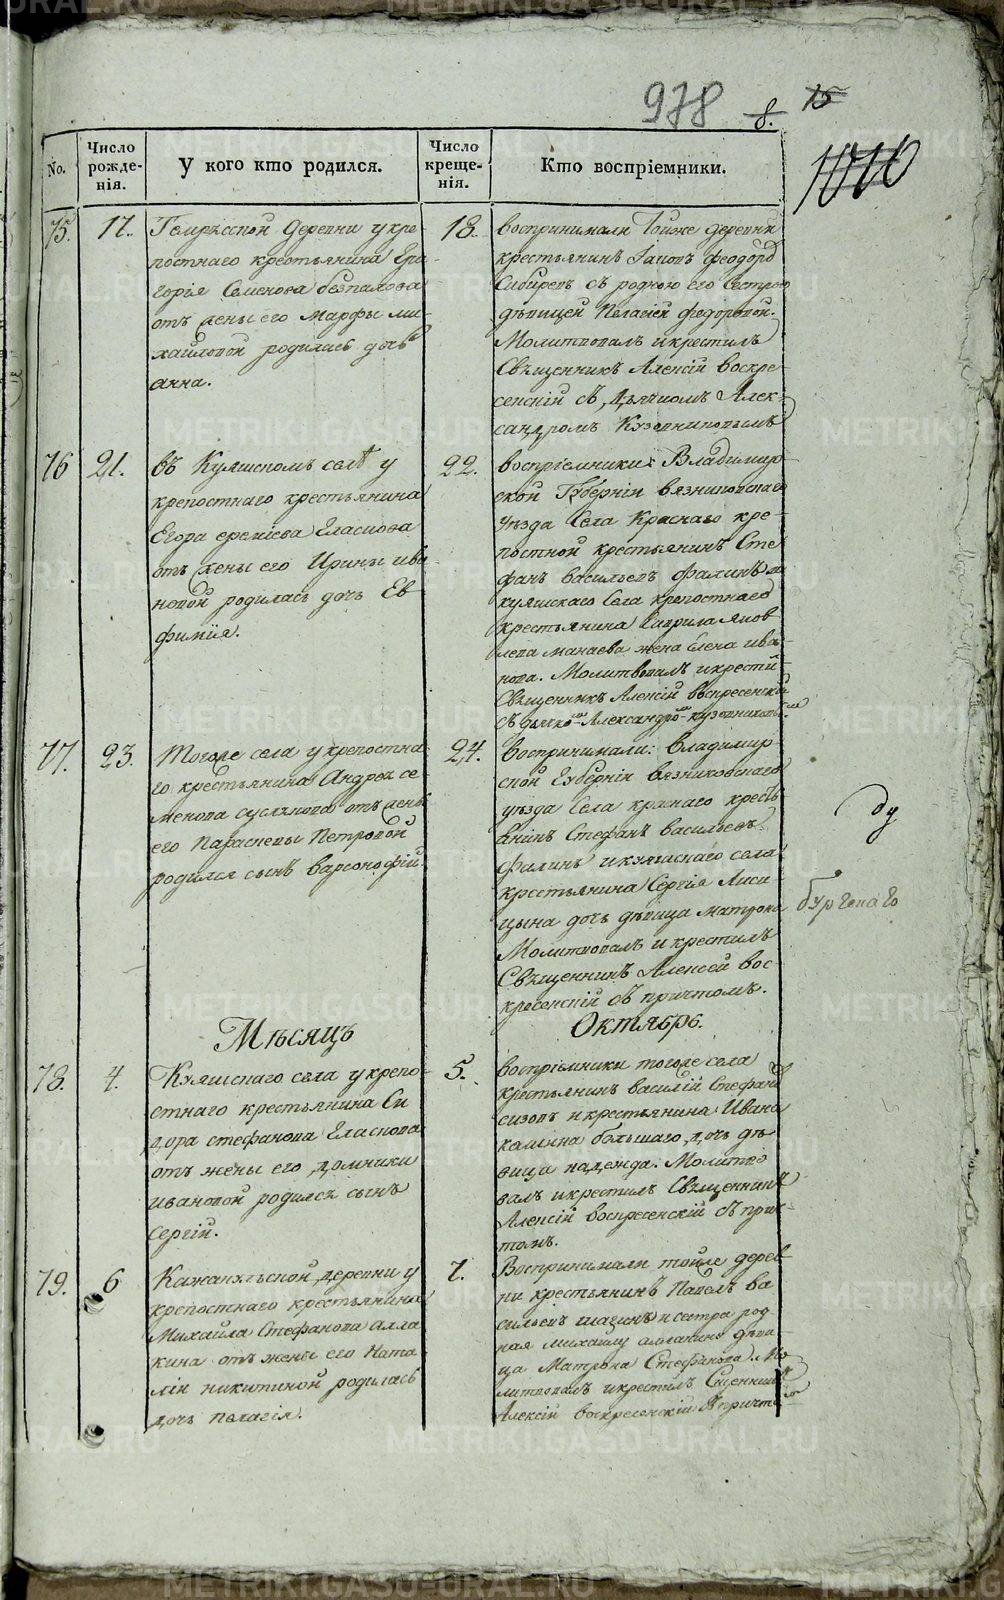 978 8. 15
1010
No.
Число рожде-нія.
У кого кто родился.
Число креще-нія.
Кто воспріемники.
75. 17.
деревни у кре-
постнаго крестьянина Гри-
горія Семенова безпалова
отъ жены его Марфы ми-
хайловой родилась дочь
анна.
18.
воспринимали тойже деревни
крестьянинъ феодоръ
Сибиревъ съ родною его Сестрою
дѣвицей Пелагіей феодоровой.
Молитвовалъ и крестилъ
Священникъ Алексій воскре-
сенскій съ дьячкомъ Алек-
сандромъ
76 21.
въ Куяшскомъ селѣ у
крепостнаго крестьянина
Егора еремѣева Еласкова
отъ жены его Ирины ива-
новой родилась дочь Ев
фимія.
22.
воспріемники: Владимир-
ской Губерніи вязниковскаго
уѣзда Села Краснаго кре-
постной крестьянинъ Сте
фанъ васильевъ фалинъ
куяшскаго Села крепостнаго
крестьянина Гаврила яков
лева манаева жена Елена ива-
нова. Молитвовалъ и крести
Священникъ Алексій воскресенскій
съ дьячко Александро
77. 23.
Тогоже села у крепостна-
го крестьянина Андрея се-
менова суслякова отъ жены
его Параскевы Петровой
родился сынъ варсонофій.
24.
Воспринимали: владимир
ской Губерніи вязниковскаго
уѣзда Села краснаго кресть
янинъ Стефанъ васильевъ
фалинъ и куяшскаго села
крестьянина Сергія Лиси
цына дочь дѣвица матрона
Молитвовалъ и крестилъ
Священникъ Алексей вос-
кресенскій съ причтомъ.
Мѣсяцъ Октябрь.
78. 4.
Куяшскаго села у крепо-
стнаго крестьянина Си
дора стефанова Еласкова
отъ жены его домники
ивановой родился сынъ
Сергій.
5.
воспріемники тогоже села
крестьянинъ василій Стефанов
сизовъ и крестьянина Ивана
камина большаго дочь дѣ
вица надежда. Молитво
валъ и крестилъ Священникъ
Алексій воскресенскій съ прич
томъ.
79. 6
деревни у
крепостнаго крестьянина
Михаила Стефанова алла
кина отъ жены его Ната
ліи никитиной родилась
дочь пелагія.
7.
Воспринимали тойже дерев
ни крестьянинъ Павелъ ва
сильевъ и сестра род
ная михаилу аллакину дѣви
ца Матрона Стефанова. Мо
литвовалъ и крестилъ Сщенникъ
Алексій воскресенскій съ причто
METRIKI.GASO-URAL.RU